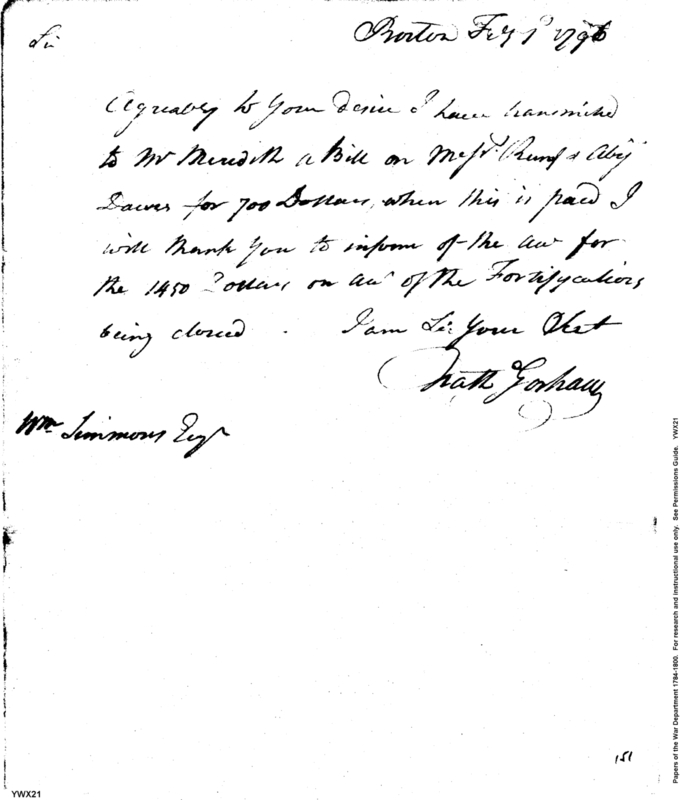 Boston Feby 1st 1796
Sir
Agreably to Your desire I have transmitted
to Mr Meredith a Bill on Messrs. &
Dawes for 700 Dollars, when this is paid I
will thank You to inform of the acct for
the 1450 Dollars on acct of the Fortifycations
being closed. I am Sir Your Obet
Nath Gorham
Wm Simmons Esqr
151
YWX21
Papers of the War Department 1784-1800. For research and instructional use only. See Permissions Guide. YWX21